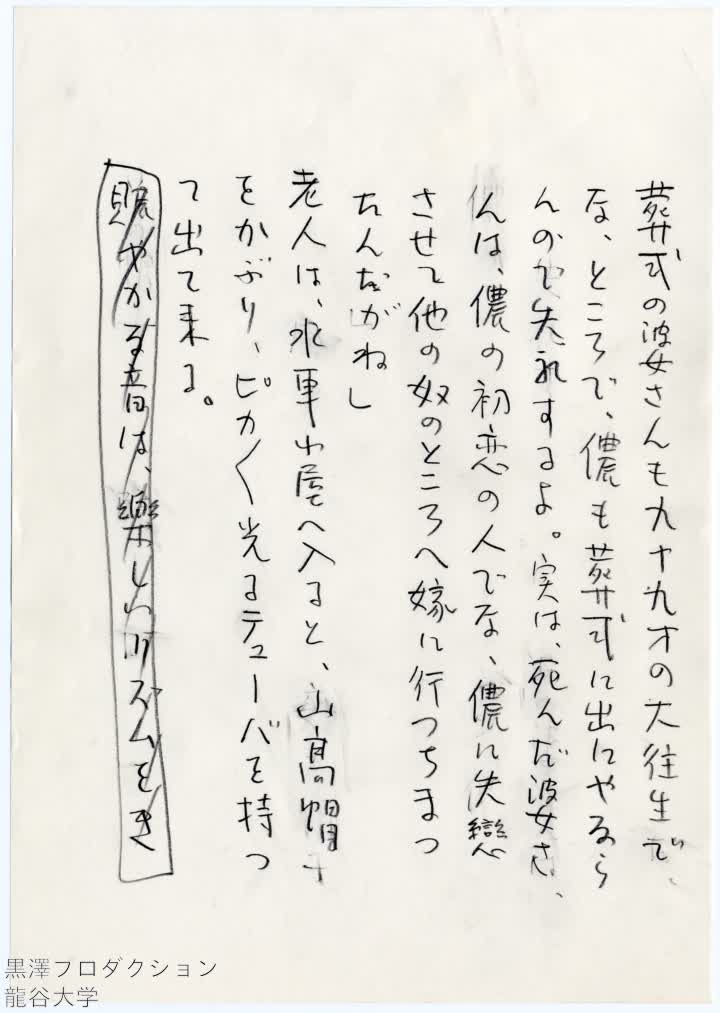 葬式の波女さんも九十九才の大往生で、
な、ところで、儂も葬式に出にやるら
んので失礼するよ。実は、死んだ波女さ、
んは、儂の初恋の人でな、儂に失戀
させて他の奴のところへ嫁に行つちまつ
たんだがね」
老人は、水車小屋へ入ると、山高帽子
をかぶり、ピカ〱光るテューバを持つ
て出て来る。
賑やかな音は、樂しいリズムをき
黒澤プロダクション
龍谷大学